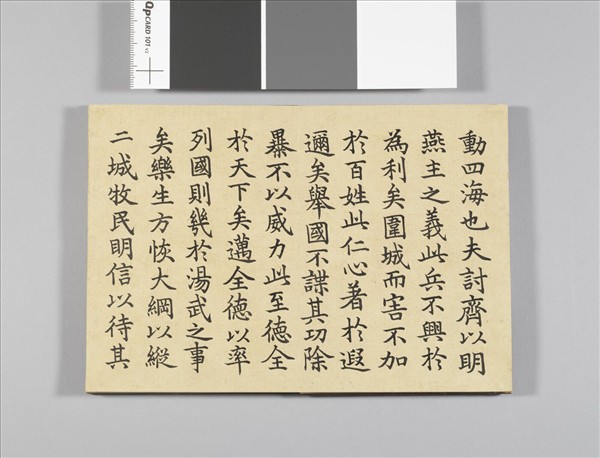 Qp CARD 101 v2
動四海也夫討齊以明
燕主之義此兵不興於
為利矣圍城而害不加
於百姓此仁心著於遐
邇矣舉國不謀其功除
暴不以威力此至德全
於天下矣邁全德以率
列國則幾於湯武之事
矣樂生方恢大綱以縱
二城牧民明信以待其